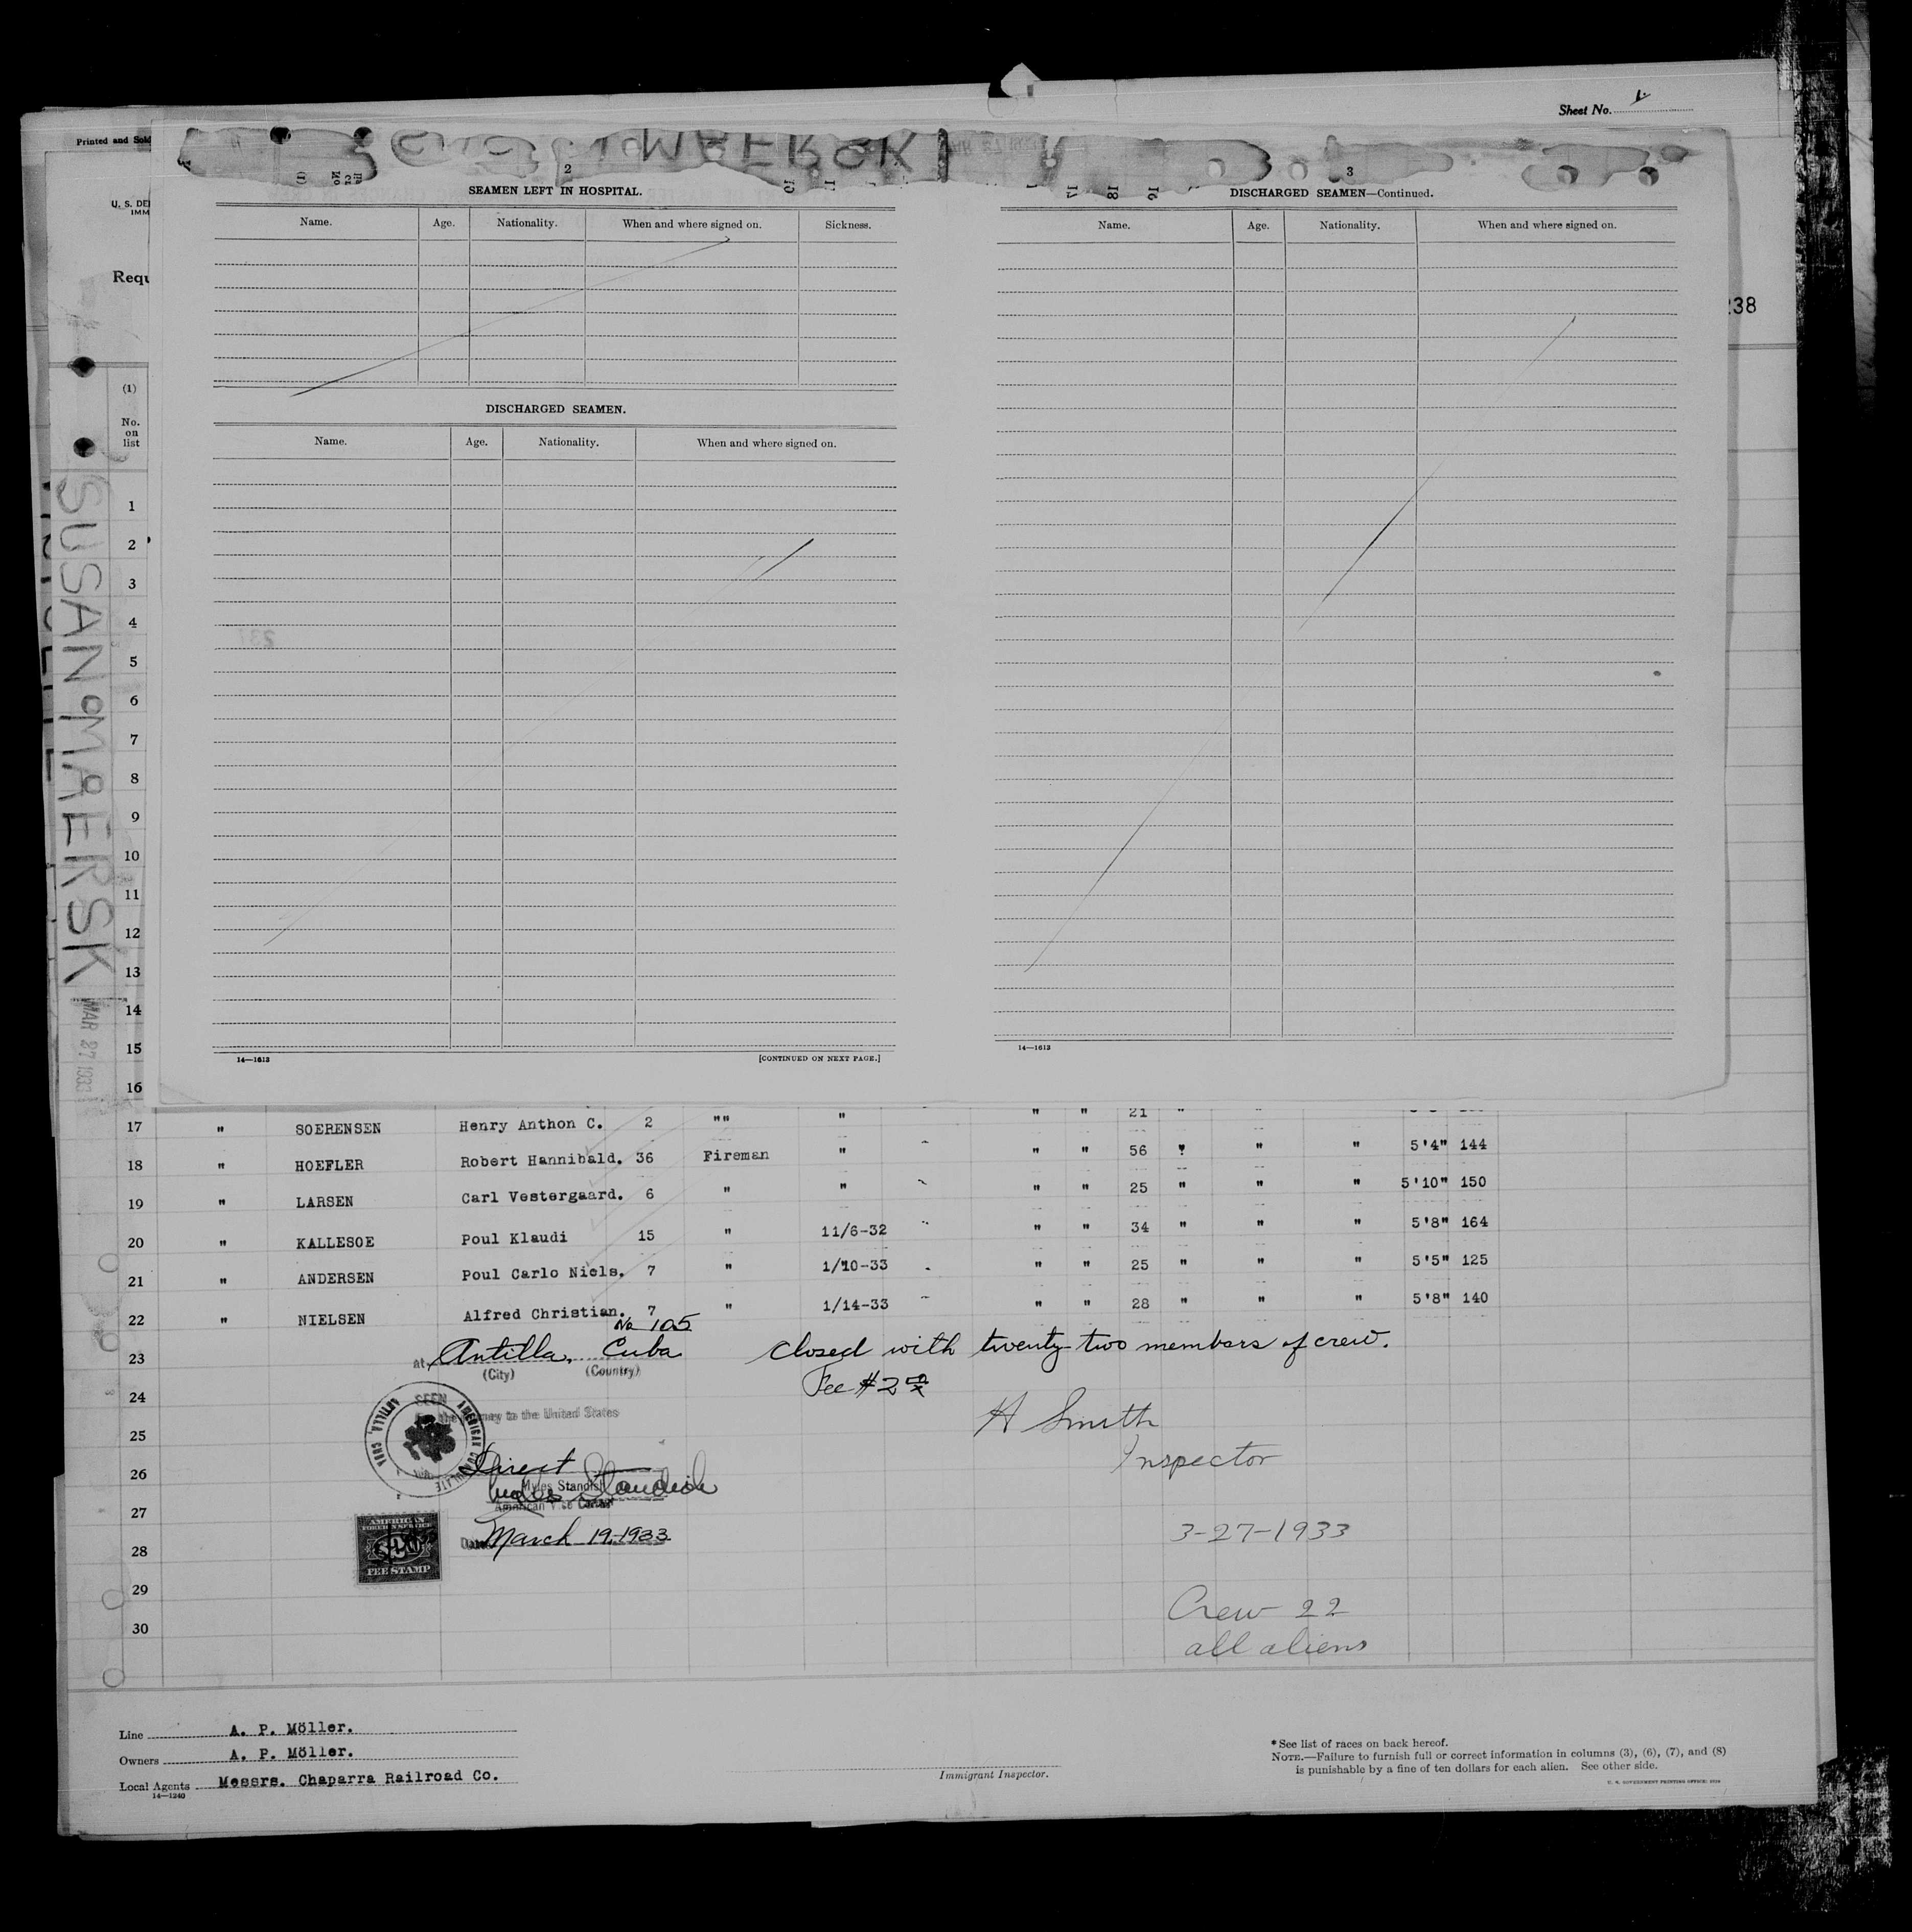 Sheet No. 1.
Printed and Sold
2
3
SEAMEN LEFT IN HOSPITAL.
DISCHARGED SEAMEN—Continued.
U. S. DE
IMM
Name. Age. Nationality. When and where signed on. Sickness.
Name. Age. Nationality. When and where signed on.
Requ
238
(1)
No.
on
list
DISCHARGED SEAMEN.
Name. Age. Nationality. When and where signed on.
SUSAN MAERSK
MAR 27 1933
1
2
3
4
231
5
6
7
8
9
10
11
12
13
14
15
14—1613 [CONTINUED ON NEXT PAGE.]
14—1613
16
" " 21 "
17 " SOERENSEN Henry Anthon C. 2 "" "
18 " HOEFLER Robert Hannibald. 36 Fireman " " " 56 " " " 5'4" 144
19 " LARSEN Carl Vestergaard. 6 " " " " 25 " " " 5'10" 150
20 " KALLESOE Poul Klaudi 15 " 11/6-32 " " 34 " " " 5'8" 164
21 " ANDERSEN Poul Carlo Niels. 7 " 1/10-33 " " 25 " " " 5'5" 125
22 " NIELSEN Alfred Christian. 7 " 1/14-33 " " 28 " " " 5'8" 140
No 105
23 at Antilla, Cuba closed with twenty-two members of crew.
(City) (Country)
Fee $2 00
24
SEEN
H Smith
For the journey to the United States
25
AMERICAN CONSULATE
ANTILLA, CUBA
Inspector
26 Direct
Myles Standish
Myles Standish
American Vice Consul
27
AMERICAN
FOREIGN SERVICE
FEE STAMP
Date March 19, 1933
3-27-1933
28
29
Crew 22
30
all aliens
Line A. P. Möller.
Owners A. P. Möller.
Local Agents Messrs. Chaparra Railroad Co.
14—1240
Immigrant Inspector.
* See list of races on back hereof.
NOTE.—Failure to furnish full or correct information in columns (3), (6), (7), and (8)
is punishable by a fine of ten dollars for each alien. See other side.
U. S. GOVERNMENT PRINTING OFFICE